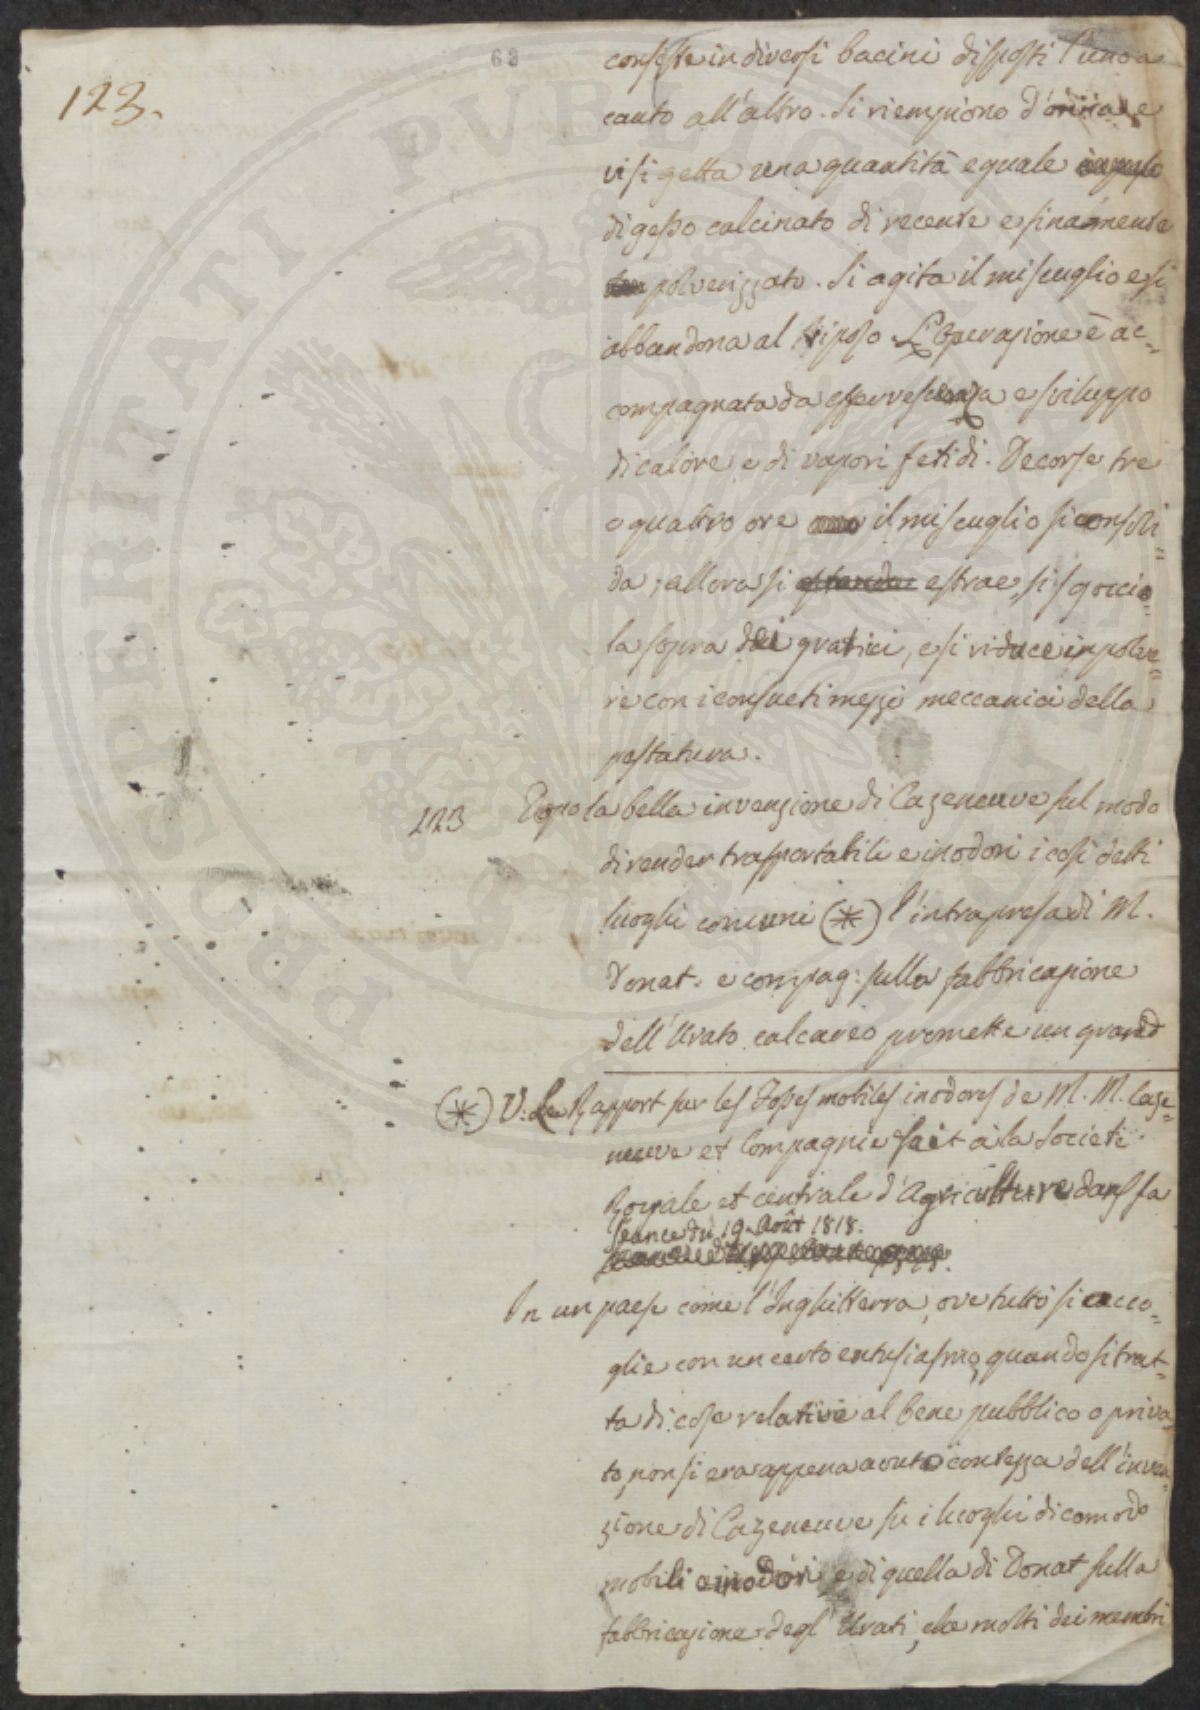 63
123.
consiste in diversi bacini disposti l'uno a
canto all'altro. Si riempiono d'orina e
vi si getta una quantità eguale
di gesso calcinato di recente e finamente
polverizzato. Si agita il miscuglio e si
abbandona al riposo L'Operazione è ac=
compagnata da effervescenza e sviluppo
di calore e di vapori fetidi. Decorse tre
o quattro ore il miscuglio si consoli=
da; allora si estrae, si sgoccio=
la sopra dei graticci, e si riduce in polve=
re con i consueti mezzi meccanici della
pestatura.
123 Dopo la bella invenzione di Cazeneuve sul modo
di render trasportabili e inodori i così detti
luoghi comuni (*) l'intrapresa di M.
Donat. e compag: sulla fabbricazione
dell'Urato calcareo promette un grand
(*) V: Le Rapport sur les Fosses mobiles inodores de M. M. Caze=
neuve et Compagnie fait à la Societé
Royale et centrale d'Agriculture dans sa
seance du 19. Août 1818.
In un paese come l'Inghilterra, ove tutto si acco=
glie con un certo entusiasmo, quando si trat=
ta di cose relative al bene pubblico o priva
to, non si era appena avuto contezza dell'inven
zione di Cazeneuve su i luoghi di comodo
mobili e inodori e di quella di Donat sulla
fabbricazione degl'Urati, che molti dei membri